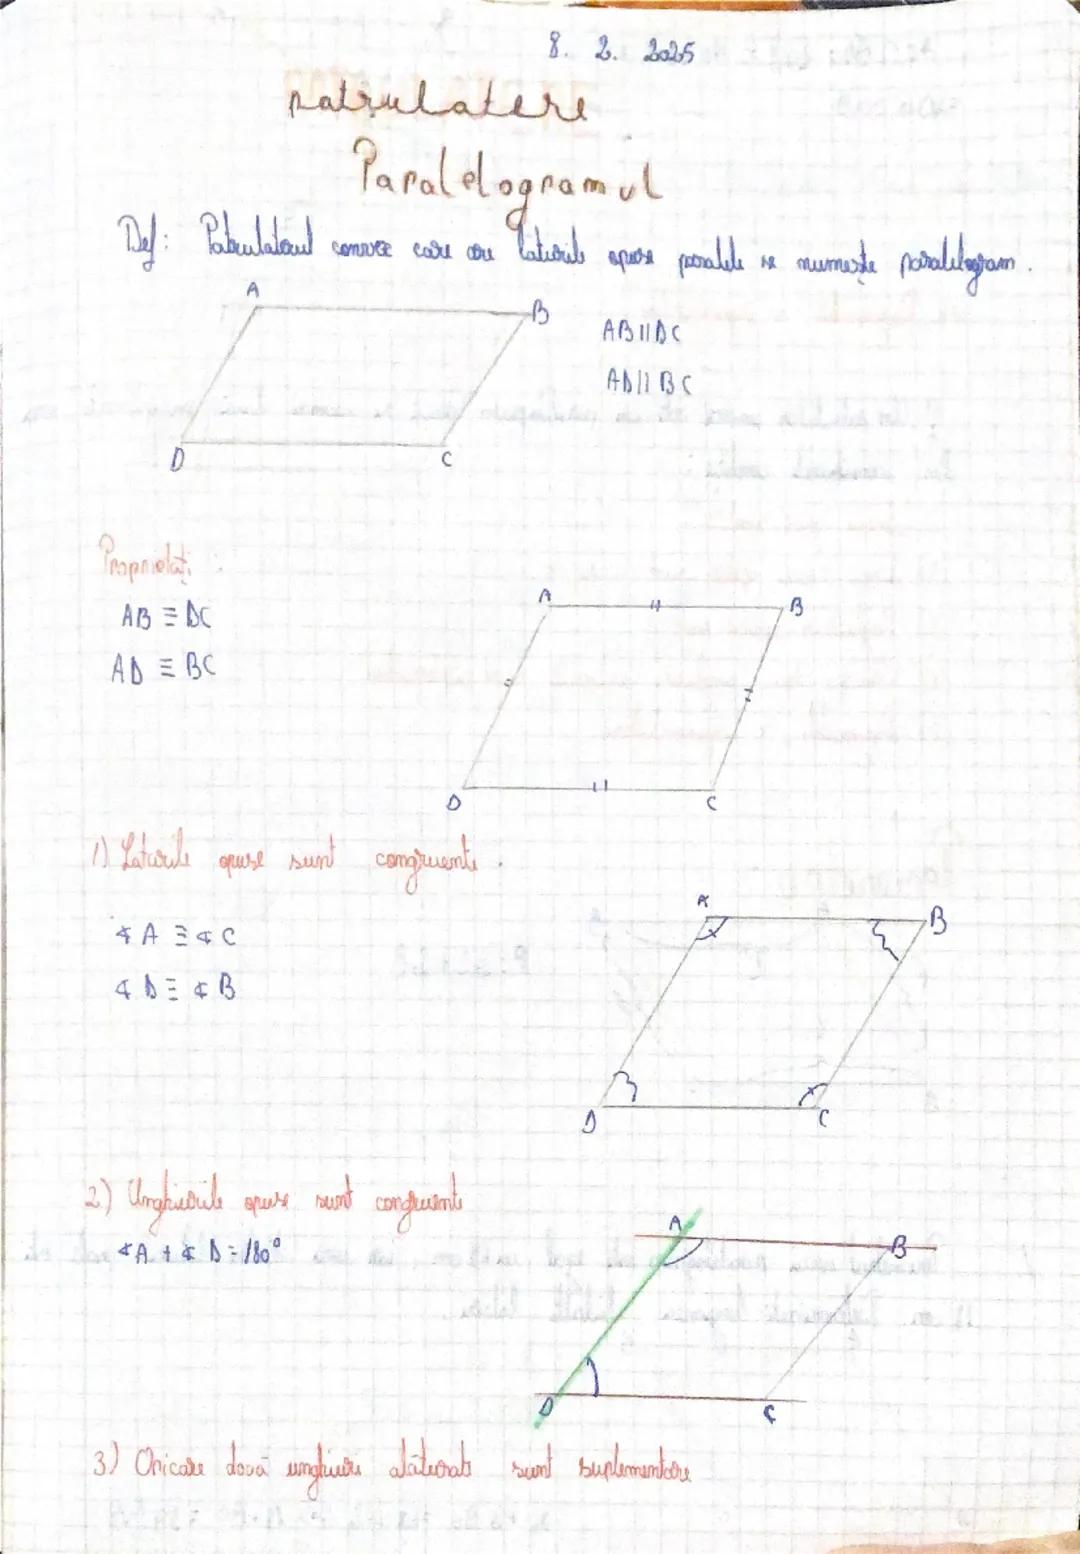 8. 2. 2025
patrulatere
Paralelogramul
Def: Patrulaterul convex care are laturile opuse paralele se numește paralelogram.
A
B
AB || DC
AD || BC
D
C
Proprietăți:
AB ≡ DC
AD ≡ BC
A
B
D
C
1) Laturile opuse sunt congruente.
∢A ≡ ∢C
∢D ≡ ∢B
A
B
D
C
2) Unghiurile opuse sunt congruente
∢A + ∢D = 180°
A
B
D
C
3) Oricare două unghiuri alăturate sunt suplementare